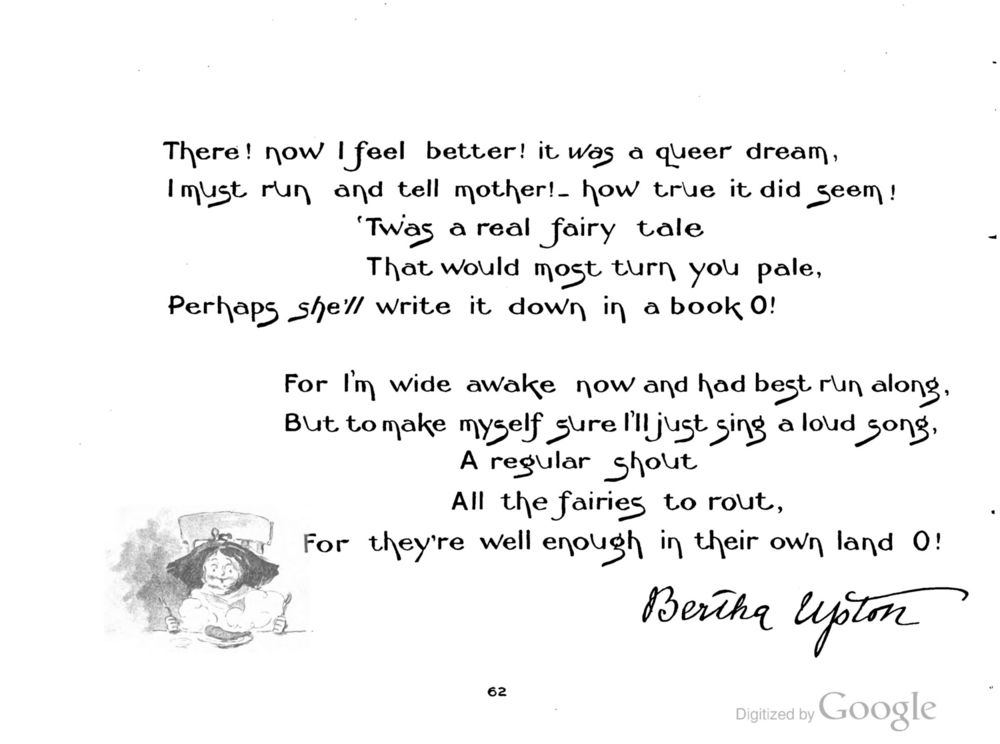 There! now I feel better! it was a queer dream,
I must run and tell mother!- how true it did seem!
'Twas a real fairy tale
That would most turn you pale,
Perhaps she'll write it down in a book O!
For I'm wide awake now and had best run along,
But to make myself sure I'll just sing a loud song,
A regular shout
All the fairies to rout,
For they're well enough in their own land O!
Bertha Upton
62
Digitized by Google